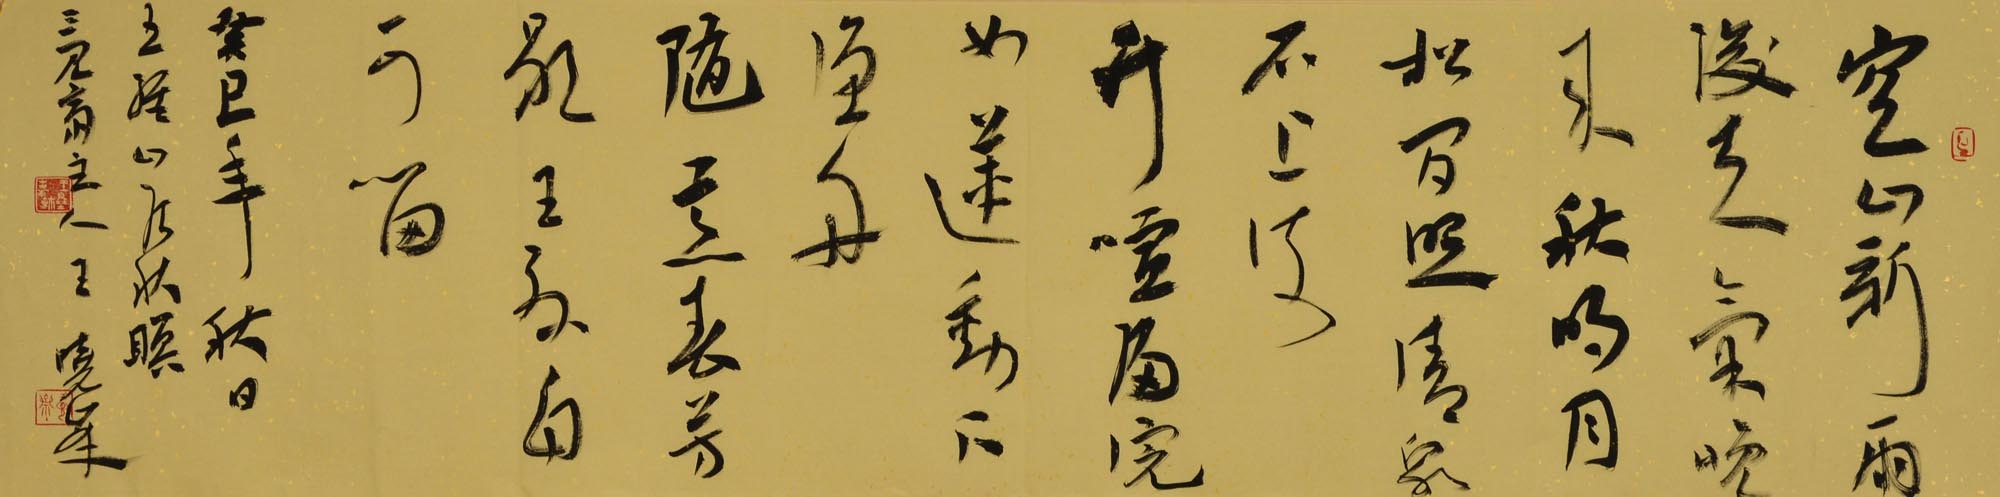 空山新雨
後天氣晚
来秋明月
松间照清泉
石上流
竹喧歸浣
女蓮動下
渔舟
随意春芳
歇王孙自
可留
癸巳年秋日
王维山居秋暝
三 齋主人王曉